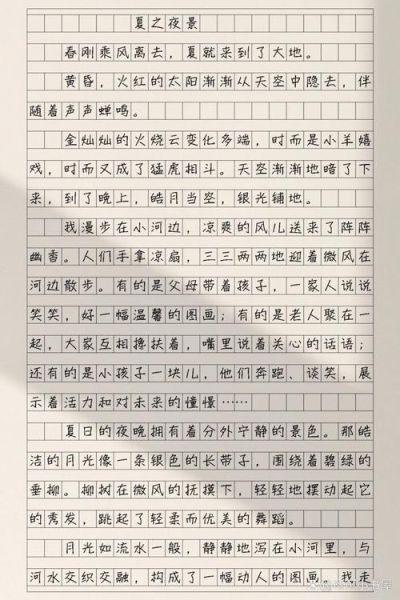 夏之夜景
春刚乘风离去，夏就来到了大地。
黄昏，火红的太阳渐渐从天空中隐去，伴
随着声声蝉鸣。
金灿灿的火烧云变化多端，时而是小羊嬉
戏，时而又成了猛虎相斗。天空渐渐地暗了下
来，到了晚上，皓月当空，银光铺地。
我漫步在小河边，凉爽的风儿送来了阵阵
幽香。人们手拿凉扇，三三两两地迎着微风在
河边散步。有的是父母带着孩子，一家人说说
笑笑，好一幅温馨的图画；有的是老人聚在一
起，大家互相搀扶着，嘴里说着关心的话语；
还有的是小孩子一块儿，他们奔跑、谈笑，展
示着活力和对未来的憧憬……
夏日的夜晚拥有着分外宁静的景色。那皓
洁的月光像一条银色的长带子，围绕着碧绿的
垂柳。柳树在微风的抚摸下，轻轻地摆动起它
的秀发，跳起了轻柔而优美的舞蹈。
月光如流水一般，静静地泻在小河里，与
河水交织交融，构成了一幅动人的图画。我走